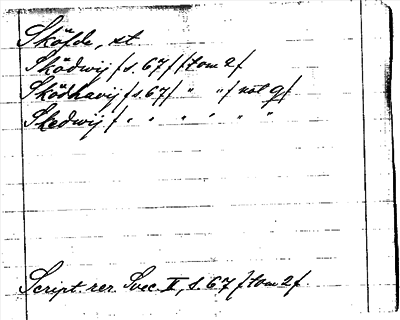 Sköfde, st.
Sködwij /s. 67/ /tom 2/
Sködhavij /s. 67/ " "/ not q/
Skedwij / " " " " " "
Script. rer. Svec. II, s. 67 /tom 2/.